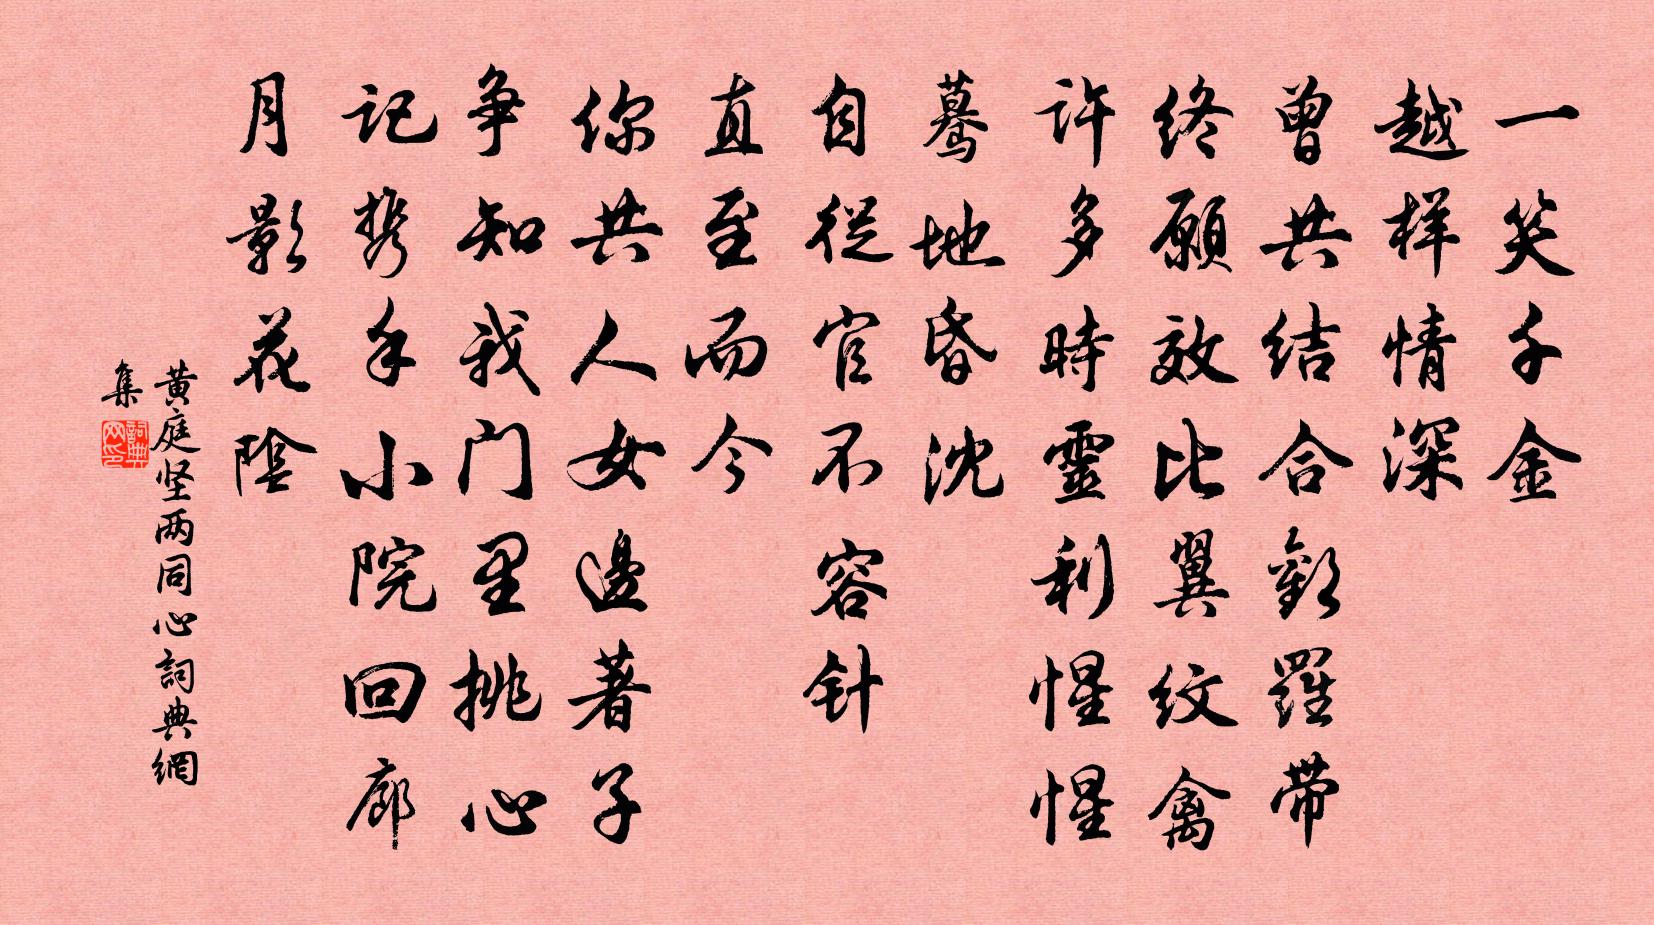 一笑千金
越样情深
曾共结合歡羅带
终願效比翼纹禽
许多時靈利惺惺
驀地昏沈
自從官不容针
直至而今
你共人女邊著子
争知我门里挑心
记携手小院回廊
月影花陰
黄庭坚两同心詞典網
集
詞典網印